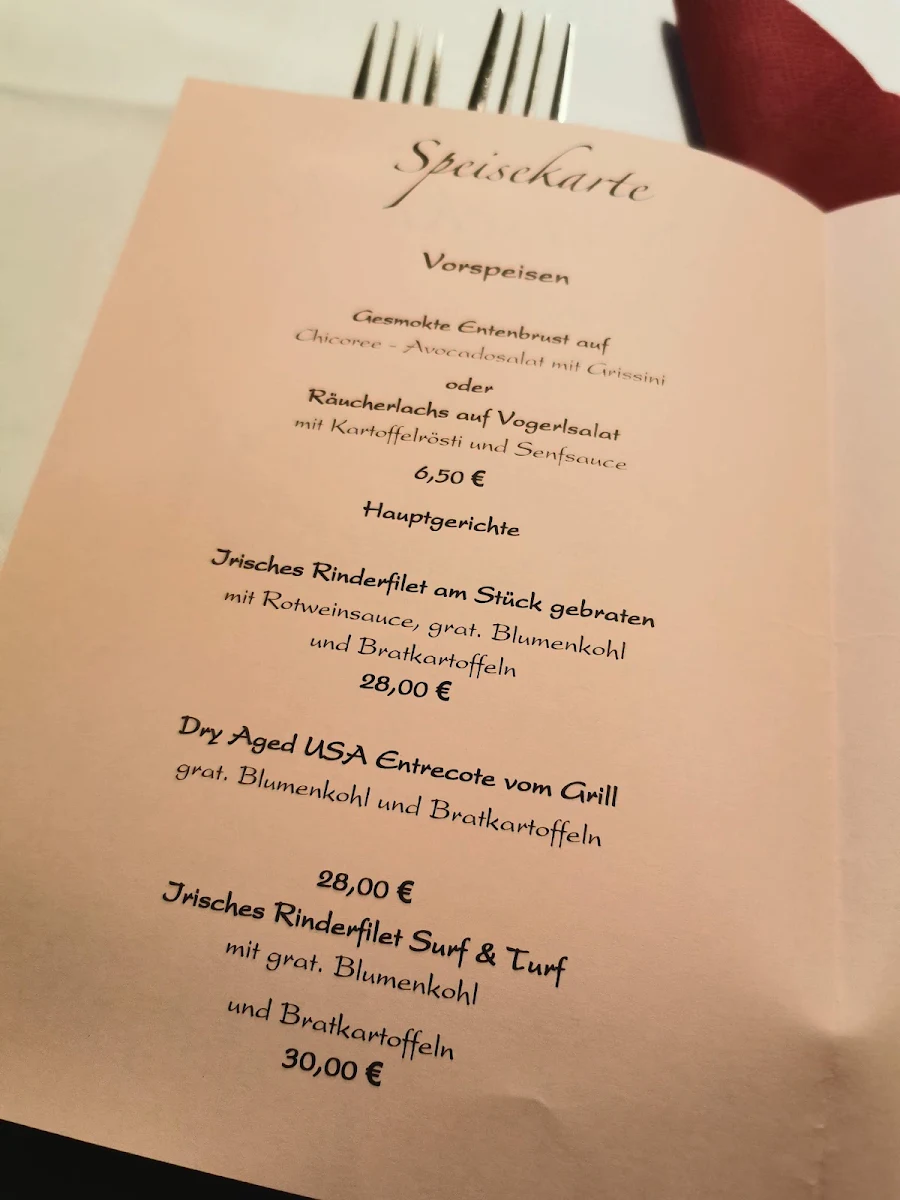 Speisekarte
Vorspeisen
Gesmokte Entenbrust auf
Chicoree - Avocadosalat mit Grissini
oder
Räucherlachs auf Vogerlsalat
mit Kartoffelrösti und Senfsauce
6,50 €
Hauptgerichte
Irisches Rinderfilet am Stück gebraten
mit Rotweinsauce, grat. Blumenkohl
und Bratkartoffeln
28,00 €
Dry Aged USA Entrecote vom Grill
grat. Blumenkohl und Bratkartoffeln
28,00 €
Irisches Rinderfilet Surf & Turf
mit grat. Blumenkohl
und Bratkartoffeln
30,00 €